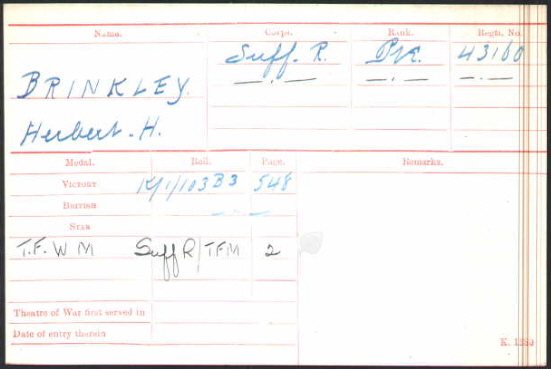 Name. Corps. Rank. Regtl. No.
Suff. R. Pte. 43160
BRINKLEY. — . — — . — — . —
Herbert. H.
Medal. Roll. Page. Remarks.
VICTORY K/1/103B3 548
BRITISH — . . —
STAR
T.F.W M Suff R/TFM 2
Theatre of War first served in
Date of entry therein